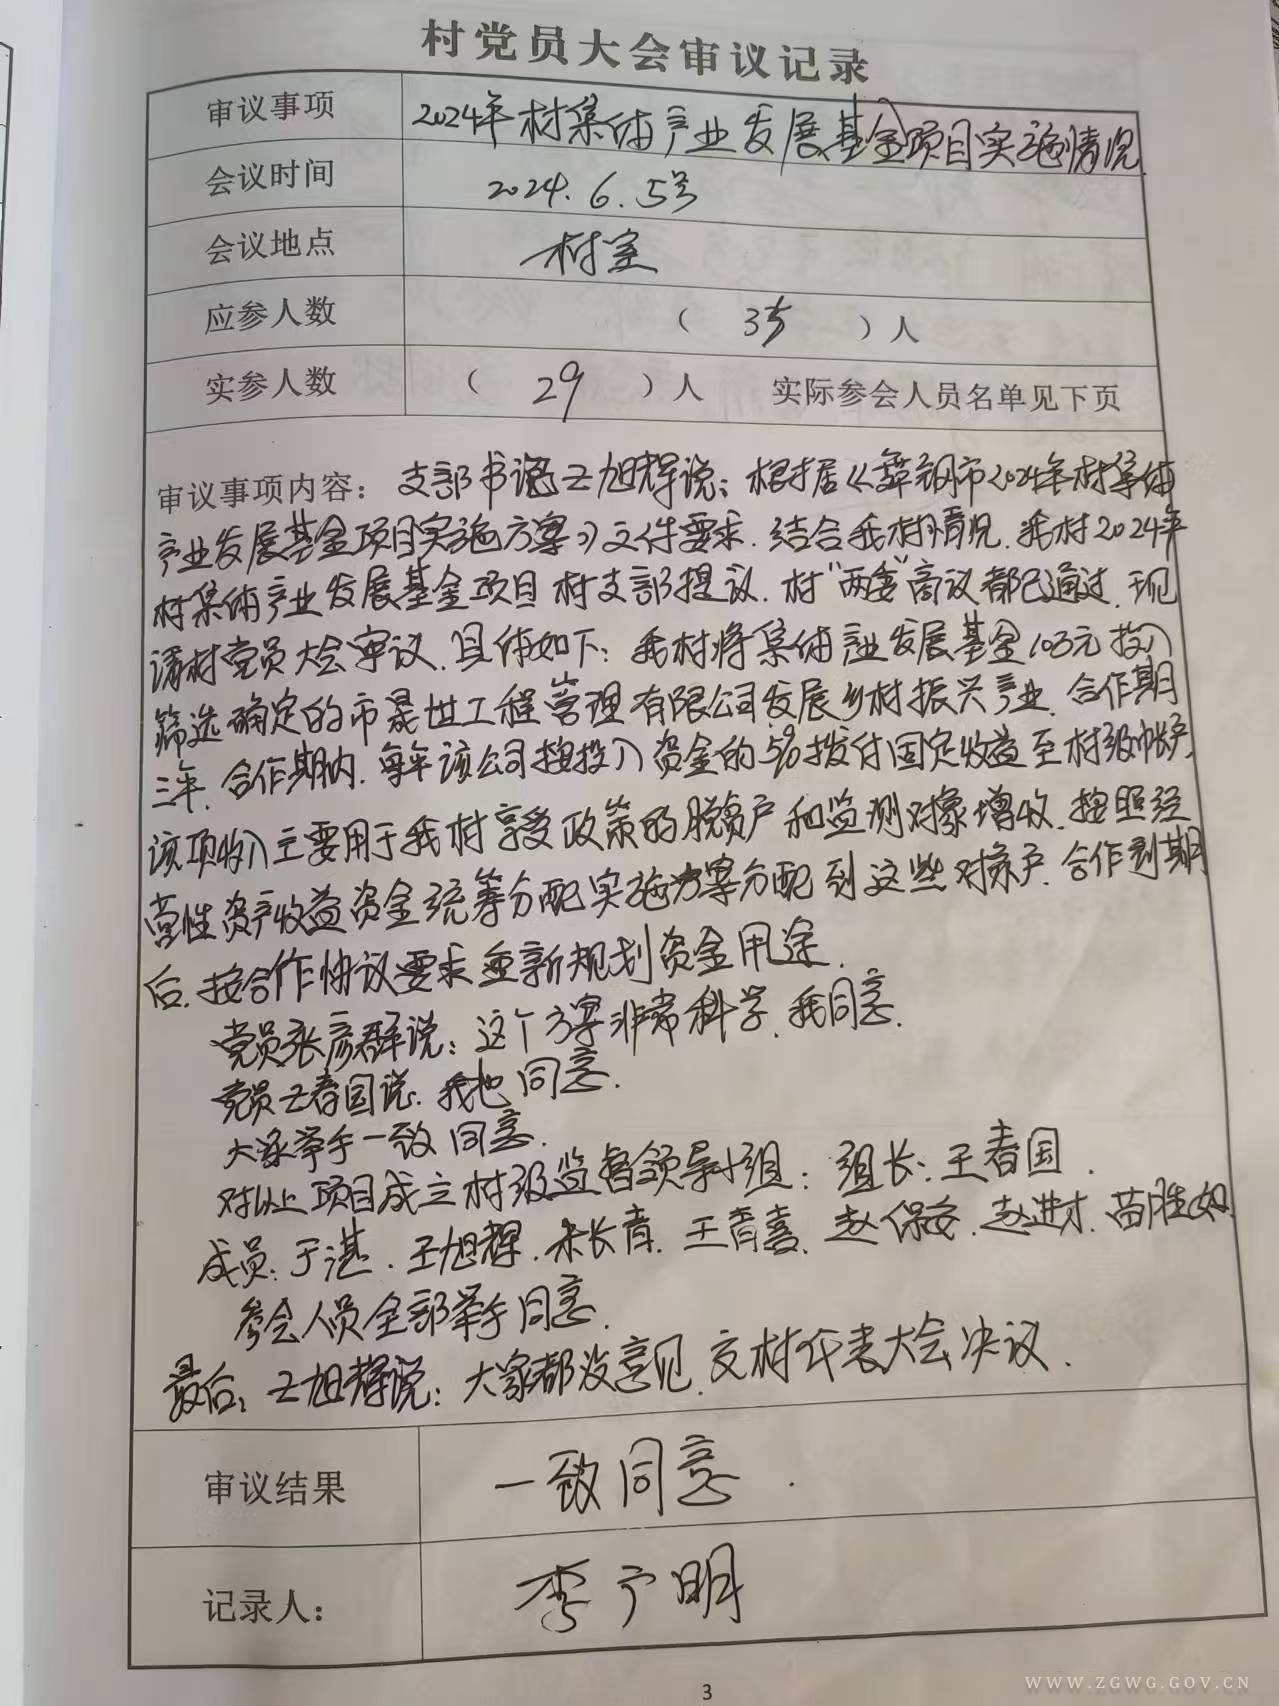 村党员大会审议记录
审议事项 2024年村集体产业发展基金项目实施情况.
会议时间 2024.6.5号
会议地点 村室
应参人数 ( 35 )人
实参人数 ( 29 )人 实际参会人员名单见下页
审议事项内容: 支部书记王旭辉说: 根据《舞钢市2024年村集体
产业发展基金项目实施方案》文件要求. 结合我村情况. 我村2024年
村集体产业发展基金项目村支部提议. 村"两委"商议都已通过. 现
请村党员大会审议. 具体如下: 我村将集体产业发展基金10万元投入
筛选确定的市晟世工程管理有限公司发展乡村振兴产业. 合作期
三年. 合作期内. 每年该公司按投入资金的5%拨付固定收益至村级帐户.
该项收入主要用于我村享受政策的脱贫户和监测对象增收. 按照经
营性资产收益资金统筹分配实施方案分配到这些对象户. 合作到期
后. 按合作协议要求重新规划资金用途.
党员张彦群说: 这个方案非常科学. 我同意.
党员王春国说. 我也同意.
大家举手一致同意.
对以上项目成立村级监督领导小组: 组长: 王春国.
成员: 于湛. 王旭辉. 朱长青. 王青喜. 赵保安. 赵进才. 苗胜如.
参会人员全部举手同意.
最后: 王旭辉说: 大家都没意见. 交村代表大会决议.
审议结果 一致同意.
记录人: 李广明
3
WWW.ZGWG.GOV.CN